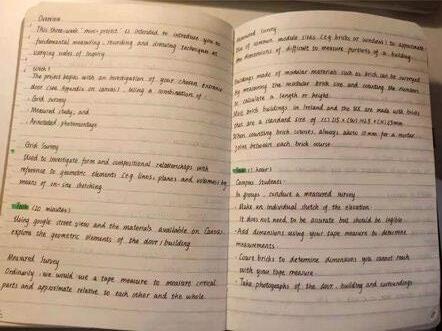 Overview
This three-week 'mini-project' is intended to introduce you to
fundamental measuring, recording and drawing techniques at
varying scales of inquiry.
Week 1
The project begins with an investigation of your chosen entrance
door (see Appendix on canvas), using a combination of:
· Grid survey
· Measured study, and
· Annotated photomontage
Grid Survey
Used to investigate form and compositional relationships with
reference to geometric elements (e.g. lines, planes and volumes) by
means of on-site sketching
(20 minutes)
Using google street view and the materials available on Canvas,
explore the geometric elements of the door/building
Measured Survey
Ordinarily, we would use a tape measure to measure critical
parts and approximate relative to each other and the whole.
Measured Survey
Use of common module sizes (e.g. bricks or windows) to approximate
the dimensions of difficult to measure portions of a building.
Buildings made of modular materials such as brick can be surveyed
by measuring the modular brick size and counting the numbers
to calculate a length or height.
Most brick buildings in Ireland and the UK are made with bricks
that are a standard size of (L) 215 x (W) 102.5 x (H) 65mm.
When counting brick courses, always add 10mm for a mortar
joint between each brick course
(1 hour)
Campus Students:
In groups, conduct a measured survey
· Make an individual sketch of the elevation
It does not need to be accurate but should be legible
· Add dimensions using your tape measure to determine
measurements.
· Count bricks to determine dimensions you cannot reach
with your tape measure.
· Take photographs of the door, building and surroundings